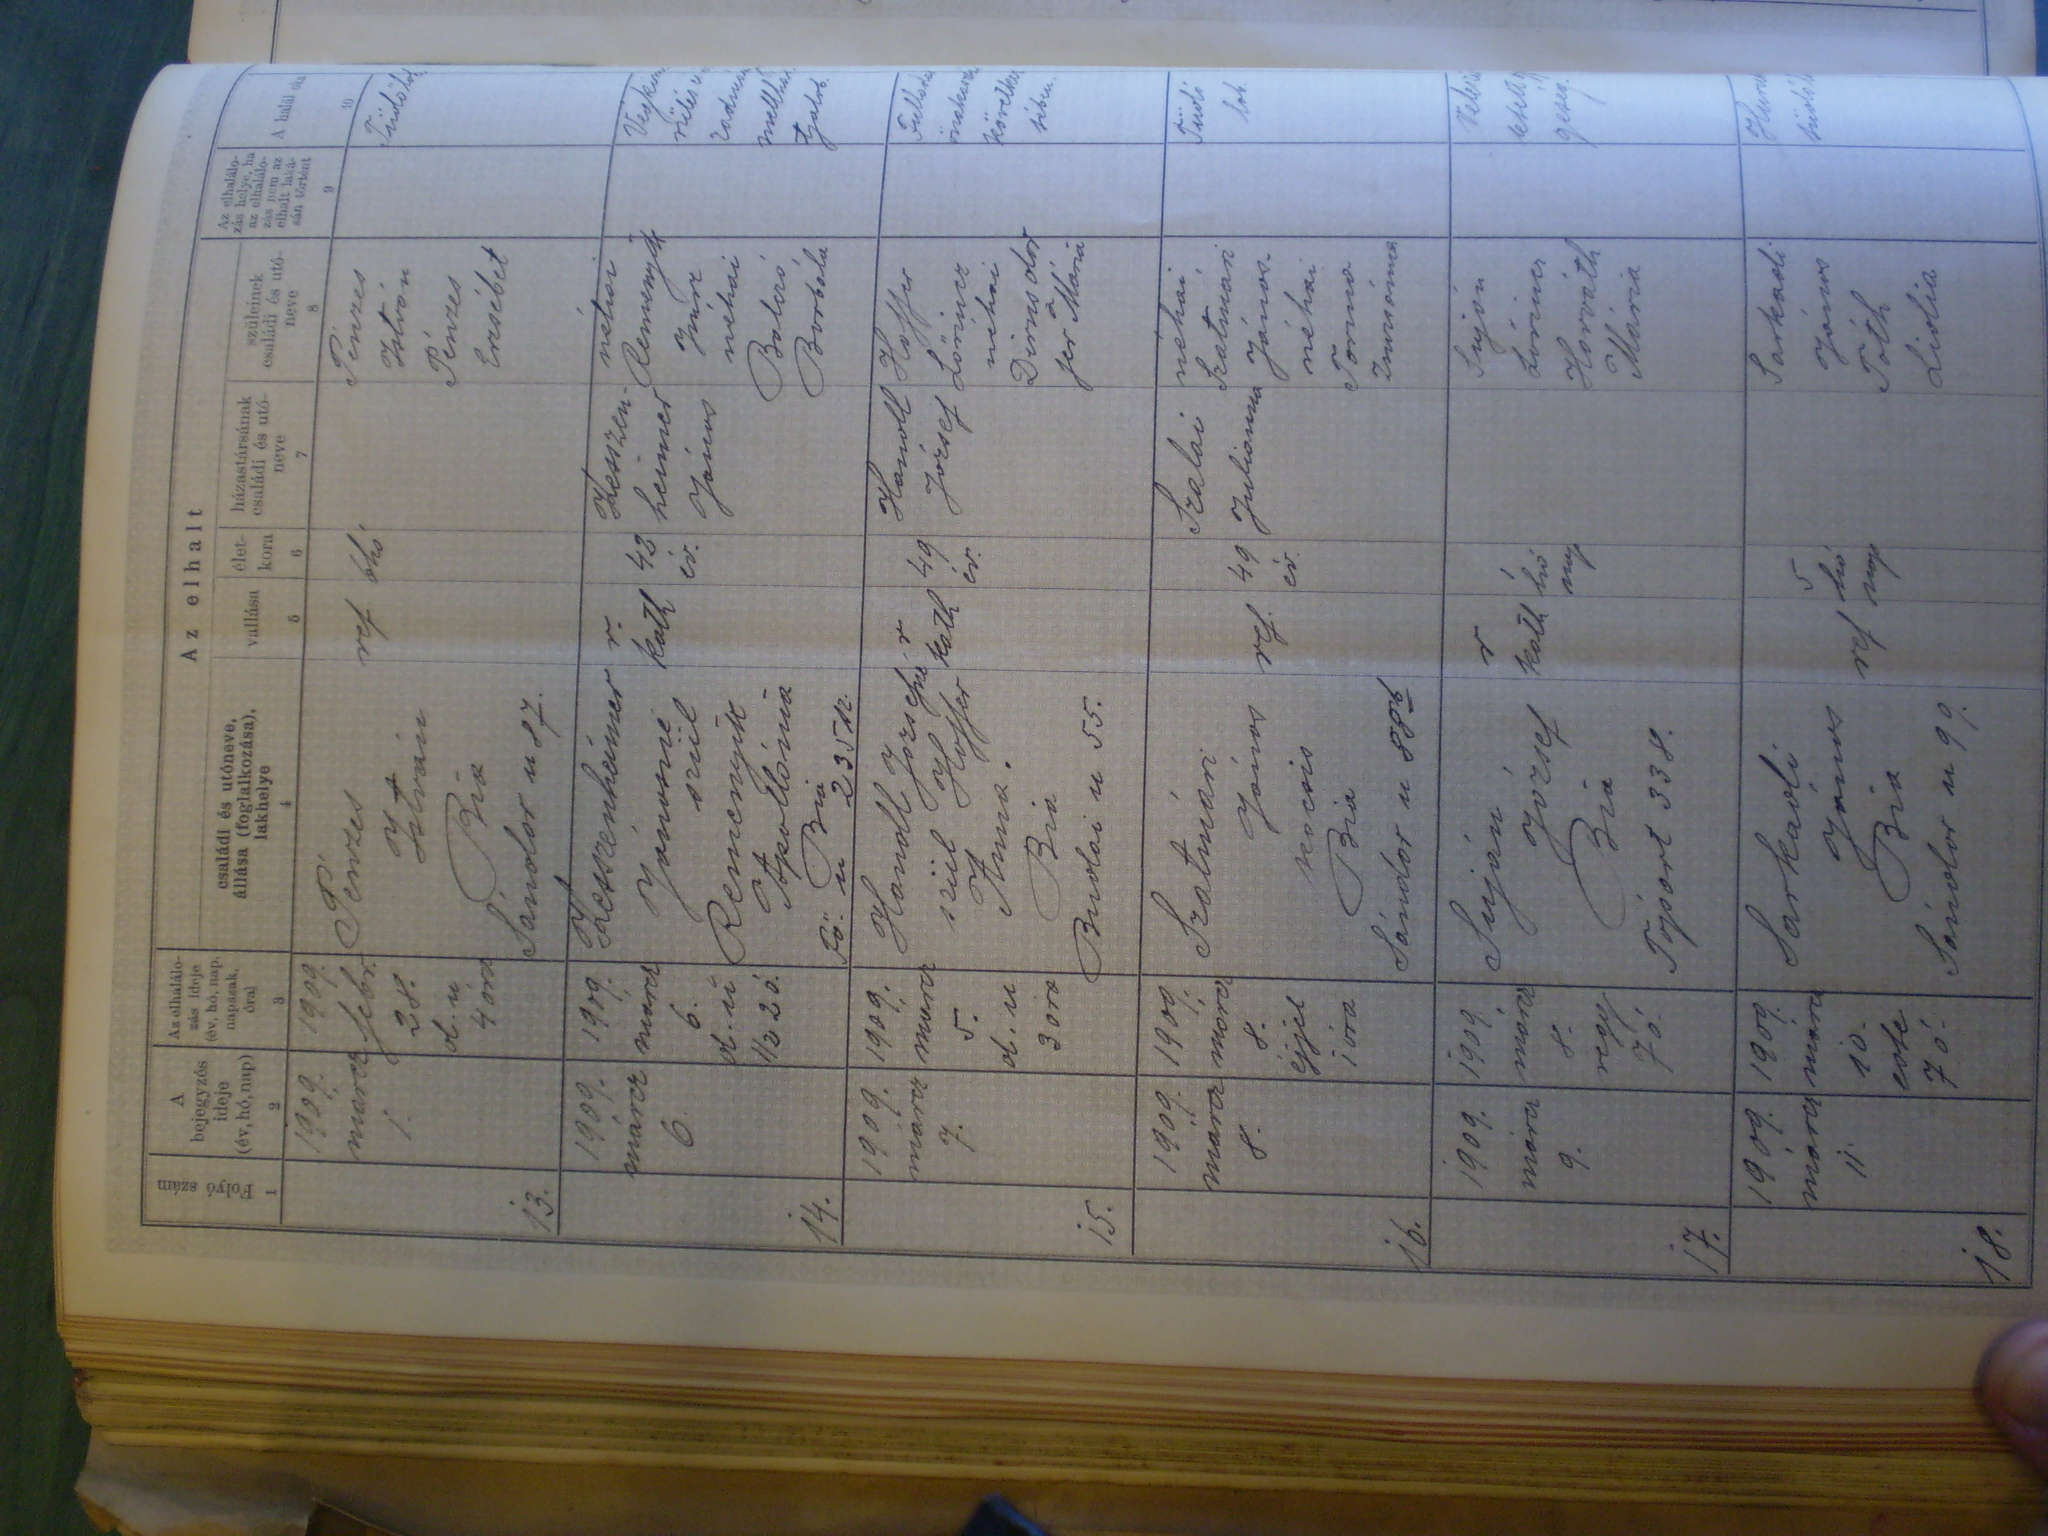 Az elhalt
Folyó szám
A bejegyzés ideje (év, hó, nap)
Az elhalálo-
zás ideje
(év, hó, nap,
napszak,
óra)
családi és utóneve,
állása (foglalkozása),
lakhelye
vallása
élet-
kora
házastársának
családi és utó-
neve
szüleinek
családi és utó-
neve
Az elhalálo-
zás helye, ha
az elhaláló-
zás nem az
elhalt laká-
sán történt
A halál oka
1
2
3
4
5
6
7
8
9
10
13.
1909.
marcz
1.
1909.
febr.
28.
d. u
4 óra
Pénzes
István
Bia
Sándor u 87.
ref
6hó
Pénzes
István
Pénzes
Erzsébet
14.
1909.
márcz
6.
1909.
marcz
6.
d. u
1/2 2 ó.
Keszenheimer
Jánosné
szül
Remenyik
Apollónia
Bia
Fő u 235 sz.
r.
kath
43
év.
Keszen-
heimer
János
néhai
Remenyik
néhai
Borbola
15.
1909.
márcz
7.
1909.
marcz
5.
d. u
3 óra
Handl Józsefné
szül Hoffer
Anna.
Bia
Budai u 55.
r
kath
49
év.
Handl
József
Hoffer
Lőrincz
néhai
Mária
16.
1909.
marcz
8.
1909.
marcz
8.
éjjel
1 óra
Szatmári
János
kocsis
Bia
Sándor u 88b
ref.
49
év.
Szalai
Julianna
néhai
Szatmári
János.
néhai
Torma
Zsuzsánna
Tüdő
lob.
17.
1909.
márcz
9.
1909.
márcz
8.
regg
7 ó.
Suján
József
Bia
Tóport 338.
r
kath
1
hó
Suján
Lőrincz
Horváth
Mária
18.
1909.
márcz
11.
1909.
márcz
10.
este
7 ó.
Sarkadi
János
Bia
Sándor u 99.
ref
5
hó
nap
Sarkadi
János
Tóth
Lidia